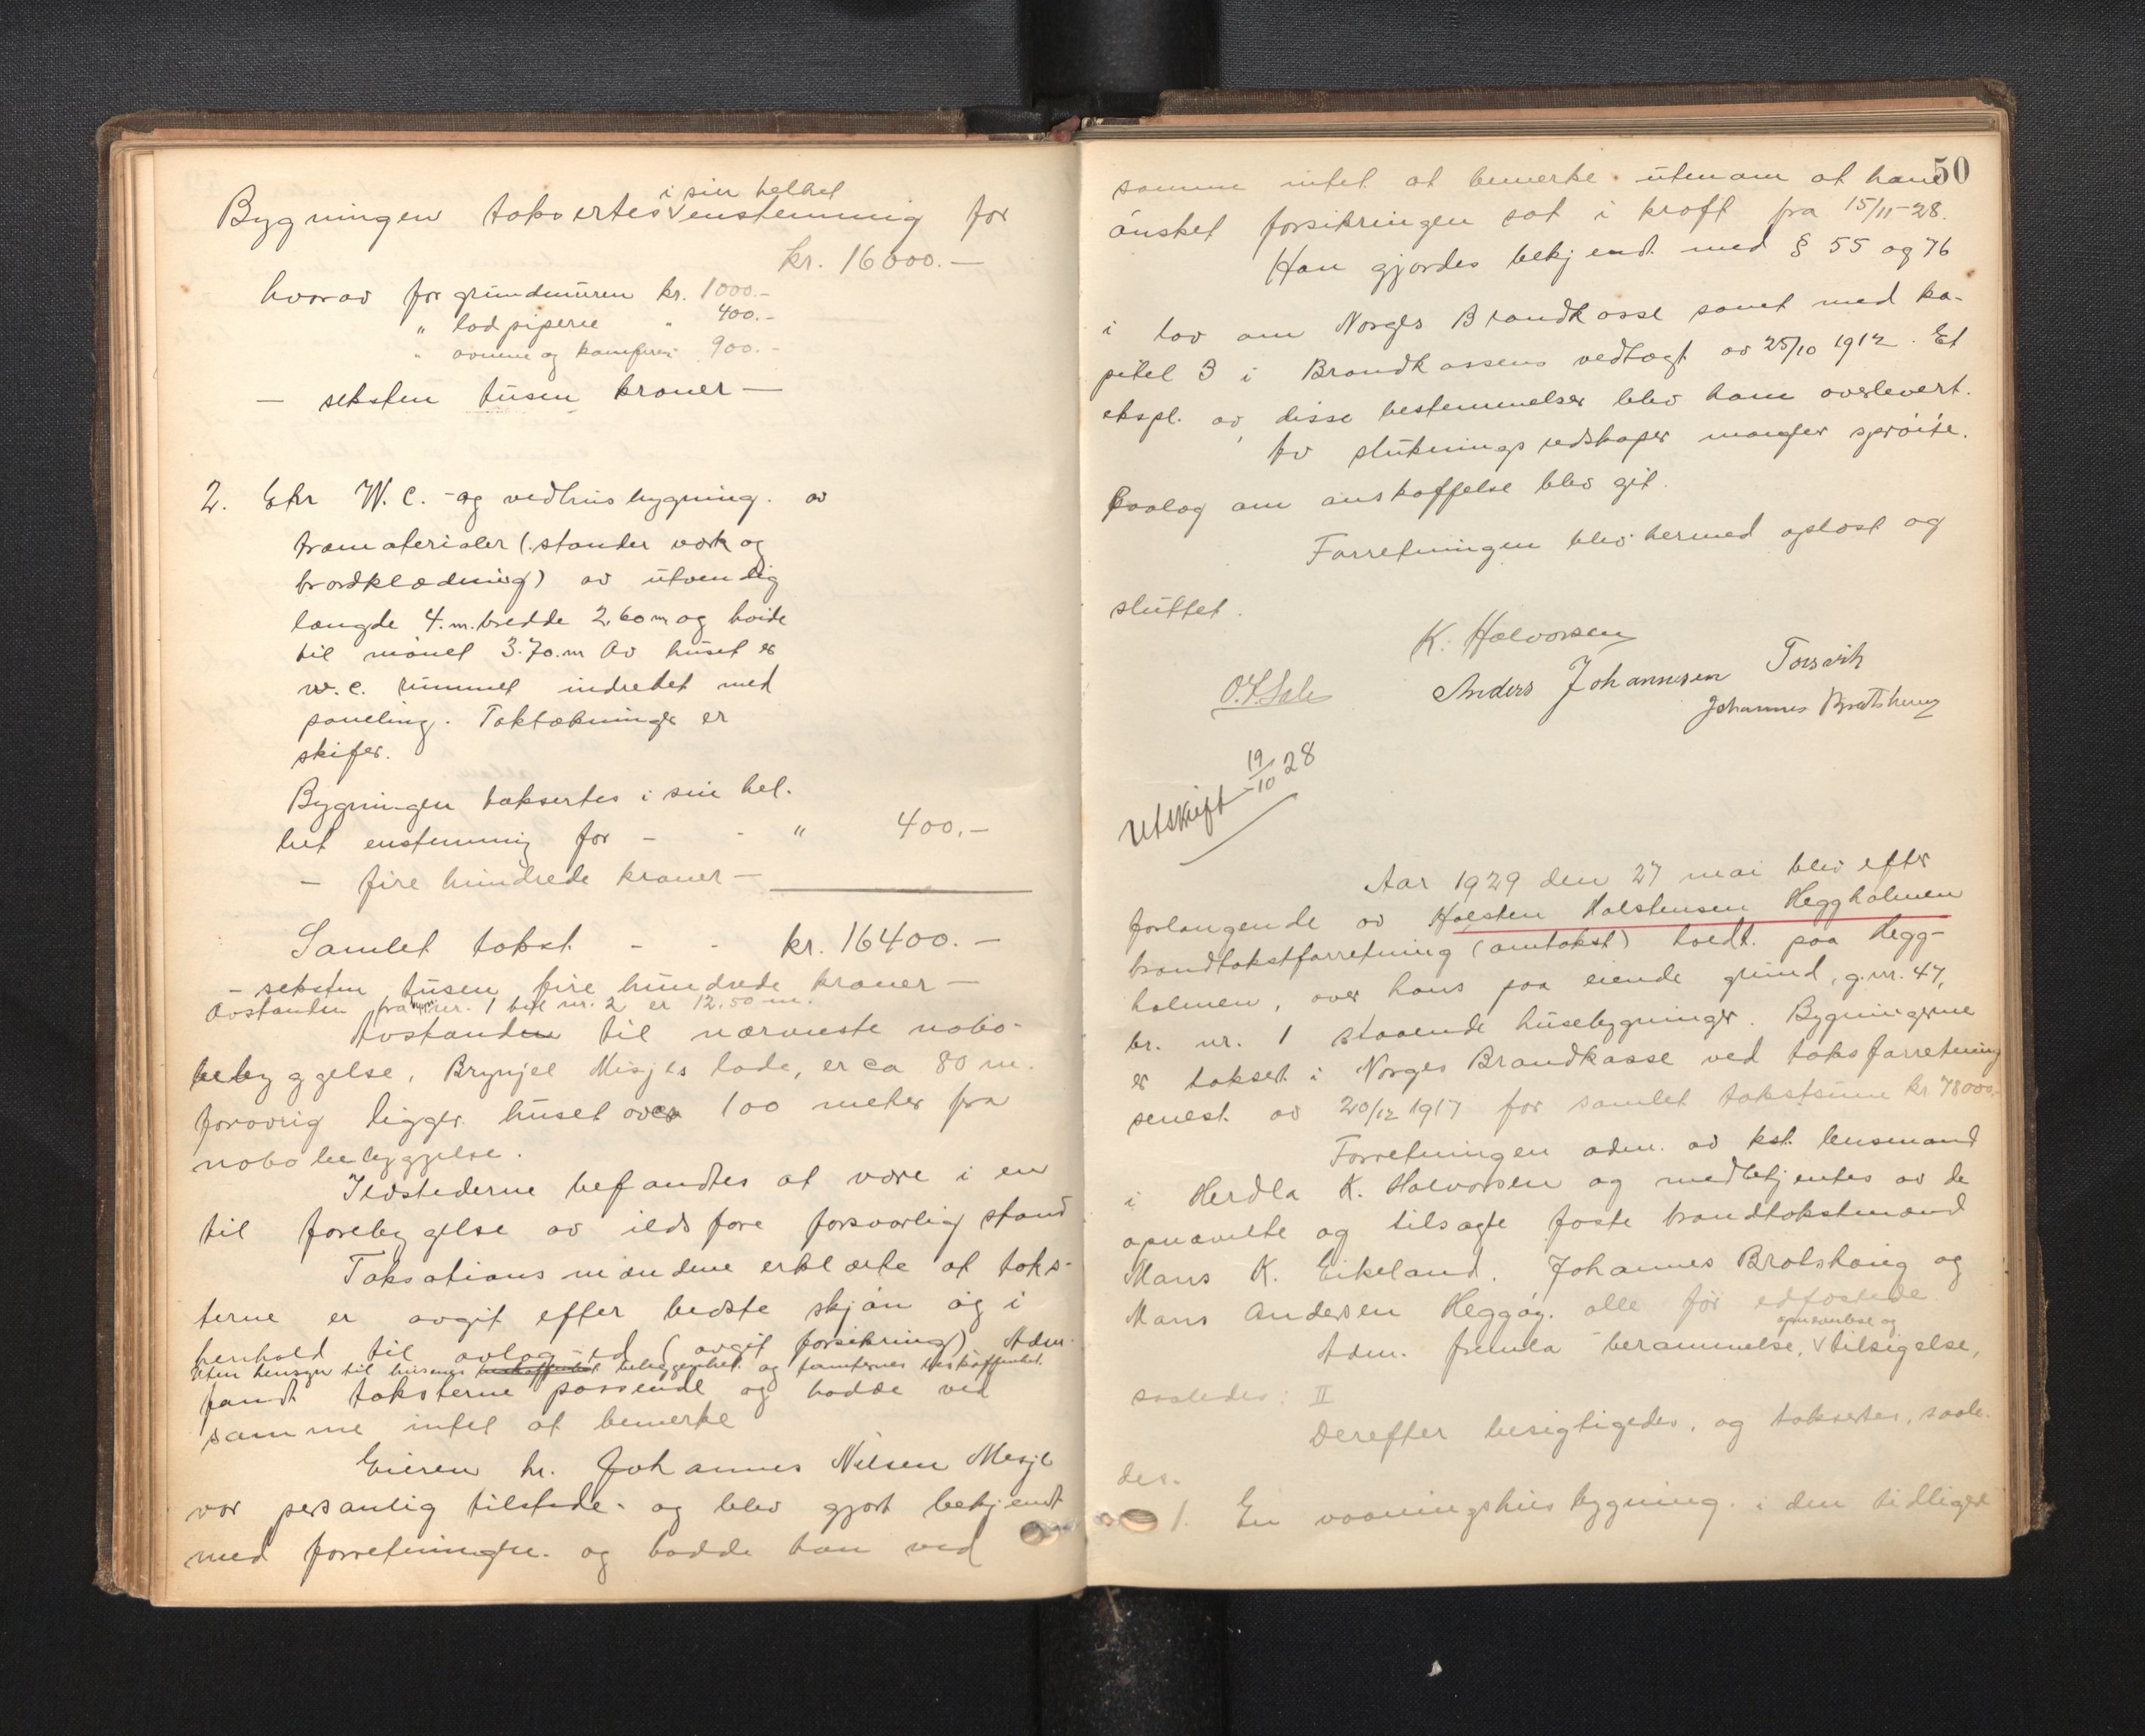 i sin helhet
Bygningen taksertes enstemmig for
kr. 16000.—
hvorav for grundmuren kr. 1000.—
" lodpiperne " 400.—
" ovnene og komfyren 900.—
— seksten tusen kroner —
2. Ett W.C.- og vedhusbygning. av
træmaterialer (stander verk og
bordklædning) av utvendig
længde 4.m. bredde 2.60 m og høide
til mønet 3.70.m Av huset er
w.c. rummet indredet med
paneling. Taktækningen er
skifer.
Bygningen taksertes i sin hel-
het enstemmig for — - " 400.—
— fire hundrede kroner —
Samlet takst - - kr. 16400.—
— seksten tusen fire hundrede kroner —
Avstanden fra hus nr. 1 til nr. 2 er 12.50 m.
Avstanden til nærmeste nabo-
bebyggelse, Brynjel Misjes lade, er ca 80 m.
forøvrig ligger huset over 100 meter fra
nabobebyggelse.
Ildstederne befandtes at være i en
til forebyggelse av ildsfare forsvarlig stand
Taksationsmændene erklærte at taks-
terne er avgit efter bedste skjøn og i
henhold til avlagt ed (avgit forsikring) Adm.
uten hensyn til husenes beskaffenhet beliggenhet og tomternes beskaffenhet.
fandt taksterne passende og hadde ved
samme intet at bemerke
Eieren hr. Johannes Nilsen Misje
var personlig tilstede. og blev gjort bekjendt
med forretningen. og hadde han ved
50
samme intet at bemerke. utenom at han
ønsket forsikringen sat i kraft fra 15/11-28.
Han gjordes bekjendt med § 55 og 76
i lov om Norges Brandkasse samt med ka-
pitel 3 i Brandkassens vedtægt av 25/10 1912. Et
ekspl. av disse bestemmelser blev ham overlevert.
Av slukningsredskaper mangler sprøite.
Paalæg om anskaffelse blev git.
Forretningen blev hermed oplæst og
sluttet.
K. Halvorsen
O.K. Sale Anders Johannesen Torsvik
Johannes Bratshaug
Utskift 19/10 28
Aar 1929 den 27 mai blev efter
forlangende av Halsten Halstensen Heggholmen
brandtakstforretning (omtakst) holdt paa Hegg-
holmen, over hans paa eiende grund, g.nr. 47,
br. nr. 1 staaende husebygninger. Bygningerne
er taksert i Norges Brandkasse ved taksforretning
senest av 20/12 1917 for samlet takstsum kr 78000,-
Forretningen adm. av kst. lensmand
i Herdla K. Halvorsen og medbetjentes av de
opnævnte og tilsagte faste brandtakstmænd
Mans K. Eikeland. Johannes Bratshaug og
Mans Andersen Heggøy. alle før edfæstede.
opnævnelse og
Adm. fremla berammelse, tilsigelse,
saaledes: II
Derefter besigtigedes, og taksertes, saale-
des.
1. En vaaningshusbygning. i den tidligere